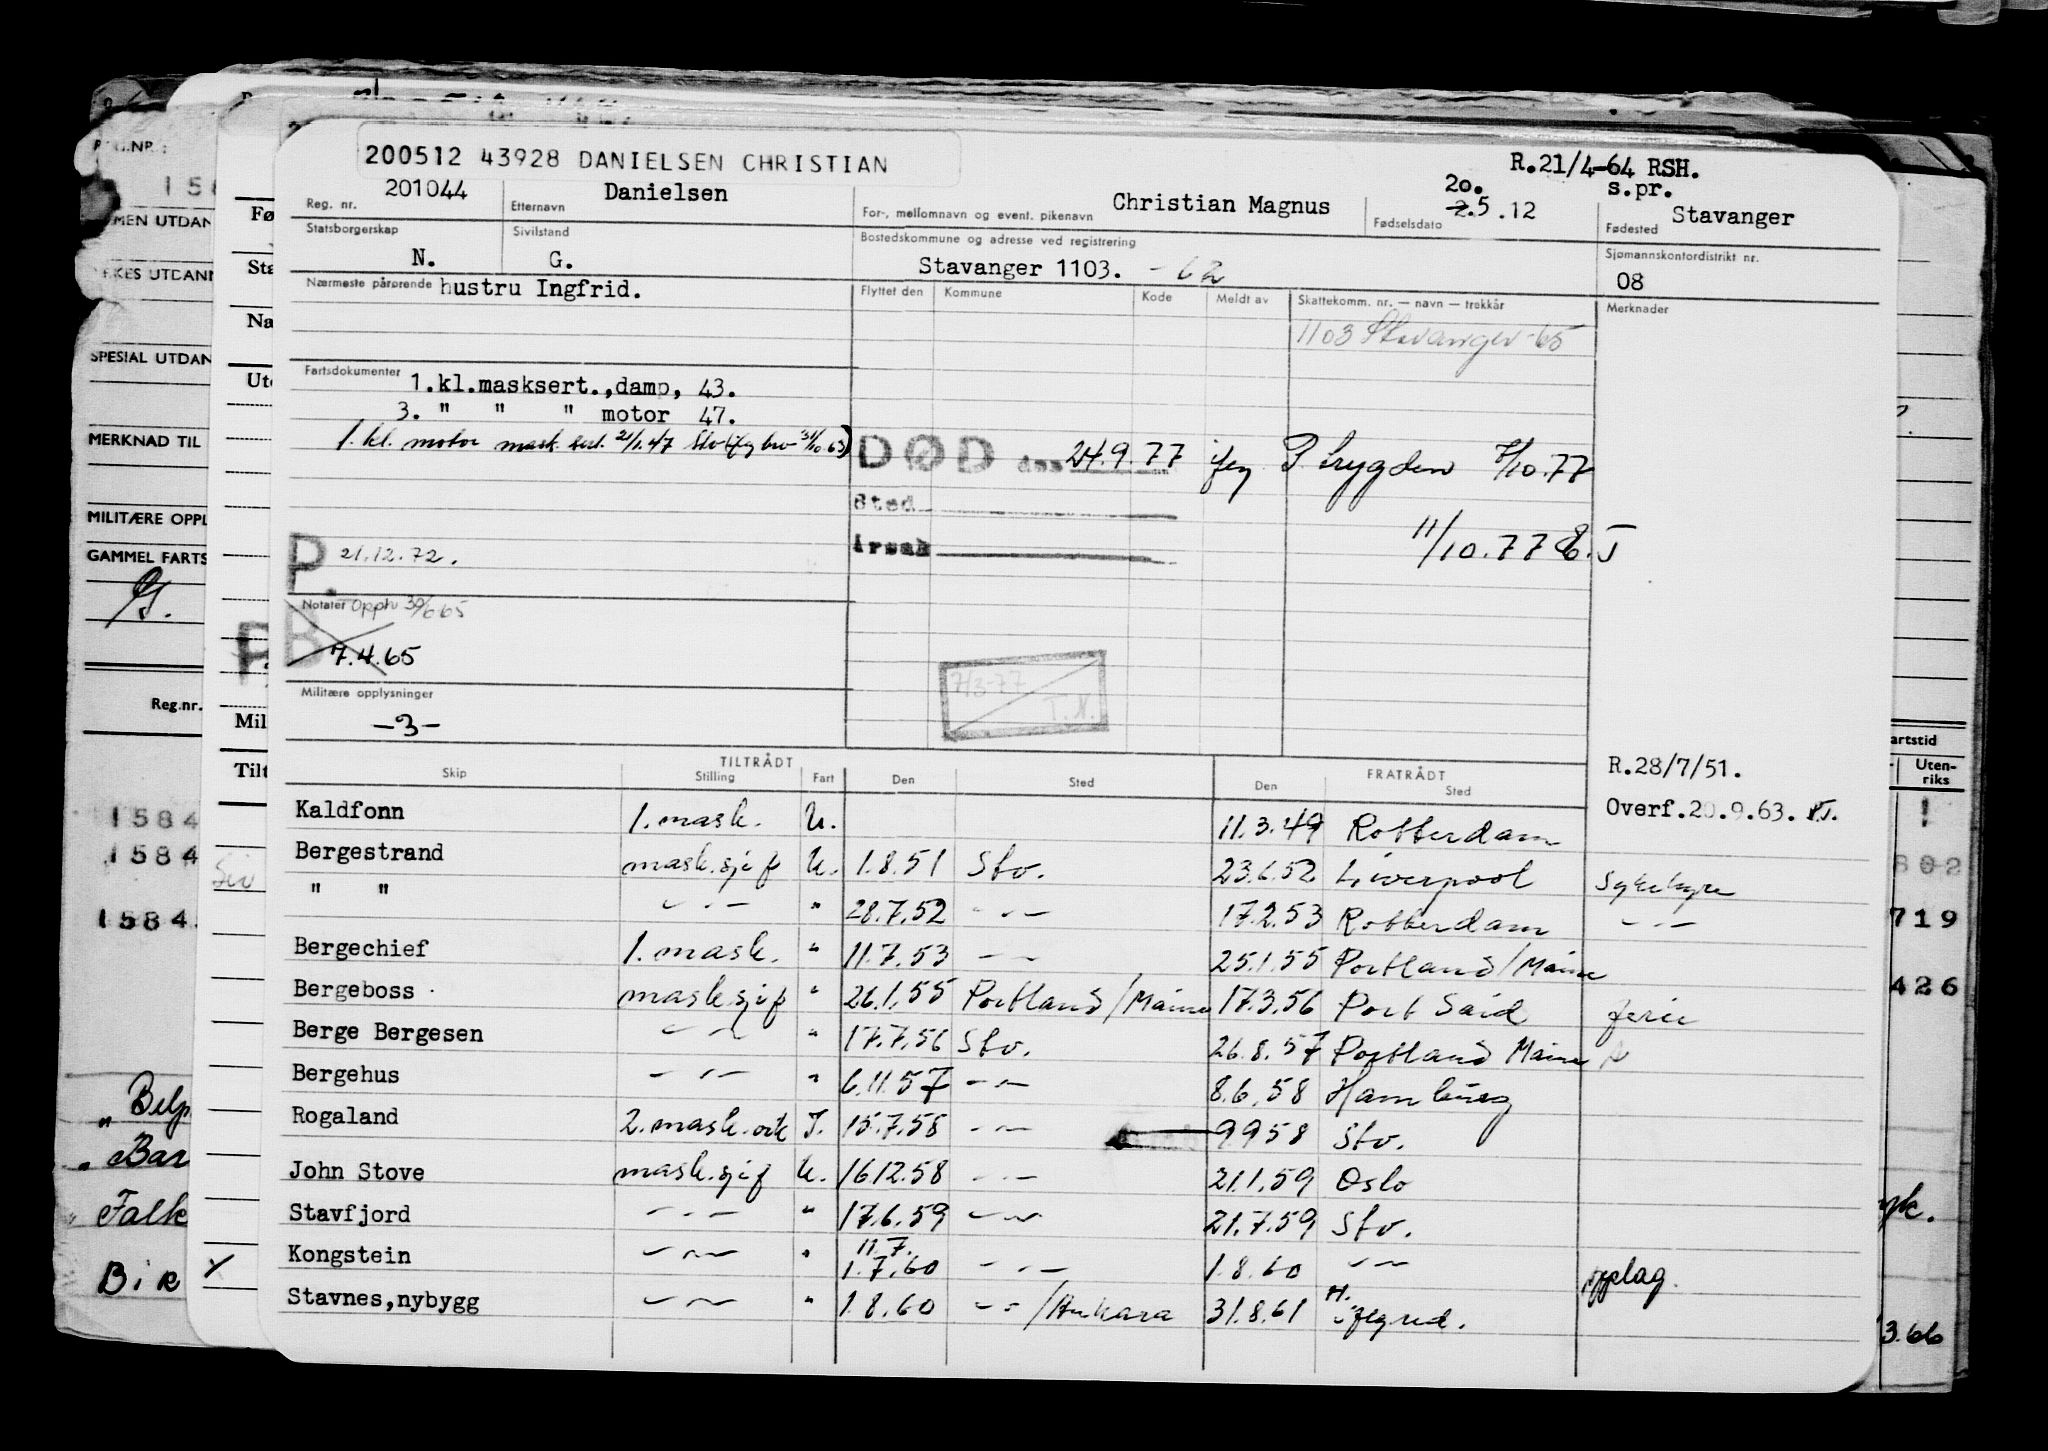 200512 43928 DANIELSEN CHRISTIAN
R.21/4-64 RSH.
s.pr.
201044 Danielsen Christian Magnus 20. 2.5.12 Stavanger
Reg. nr. Etternavn For-, mellomnavn og event. pikenavn Fødselsdato Fødested
Statsborgerskap Sivilstand Bostedskommune og adresse ved registrering Sjømannskontordistrikt nr.
N. G. Stavanger 1103. -62 08
Nærmeste pårørende hustru Ingfrid. Flyttet den Kommune Kode Meldt av Skattekomm. nr. — navn — trekkår Merknader
1103 Stavanger-65
Fartsdokumenter 1.kl.masksert.,damp, 43.
3. " " " motor 47.
1. kl. motor mask. sert. 21/1.47
DØD den 24.9.77 jfg. P. trygden 7/10.77
Sted
Årsak 11/10.77
P. 21.12.72.
Notater Opph 30/6 65
B 7.4.65
7/3-77
T.N.
Militære opplysninger
-3-
R.28/7/51.
Overf.20.9.63.
TILTRÅDT FRATRÅDT
Skip Stilling Fart Den Sted Den Sted
Kaldfonn 1. mask. U. 11.3.49 Rotterdam
Bergestrand mask.sjef U. 1.8.51 Stv. 23.6.52 Liverpool Sykehyre
" " -"- " 28.7.52 -"- 17.2.53 Rotterdam -"-
Bergechief 1. mask. " 11.7.53 -"- 25.1.55 Portland/Maine
Bergeboss mask.sjef " 26.1.55 Portland/Maine 17.3.56 Port Said ferie
Berge Bergesen -"- " 17.7.56 Stv. 26.8.57 Portland Maine
Bergehus -"- " 6.11.57 -"- 8.6.58 Hamburg
Rogaland 2. mask. I. 15.7.58 -"- 9.9.58 Stv.
John Stove mask.sjef U. 16.12.58 -"- 21.1.59 Oslo
Stavfjord -"- " 17.6.59 -"- 21.7.59 Stv.
Kongstein -"- " 11.7. 1.7.60 -"- 1.8.60 -"- opplag.
Stavnes,nybygg -"- " 1.8.60 -"-/Ankara 31.8.61
REG.NR.:
SPESIAL UTDAN
MERKNAD TIL
MILITÆRE OPPL
GAMMEL FARTS
Reg.nr.
1584
1584
1584
Falk
artstid
Uten-
riks
802
719
426
3.66